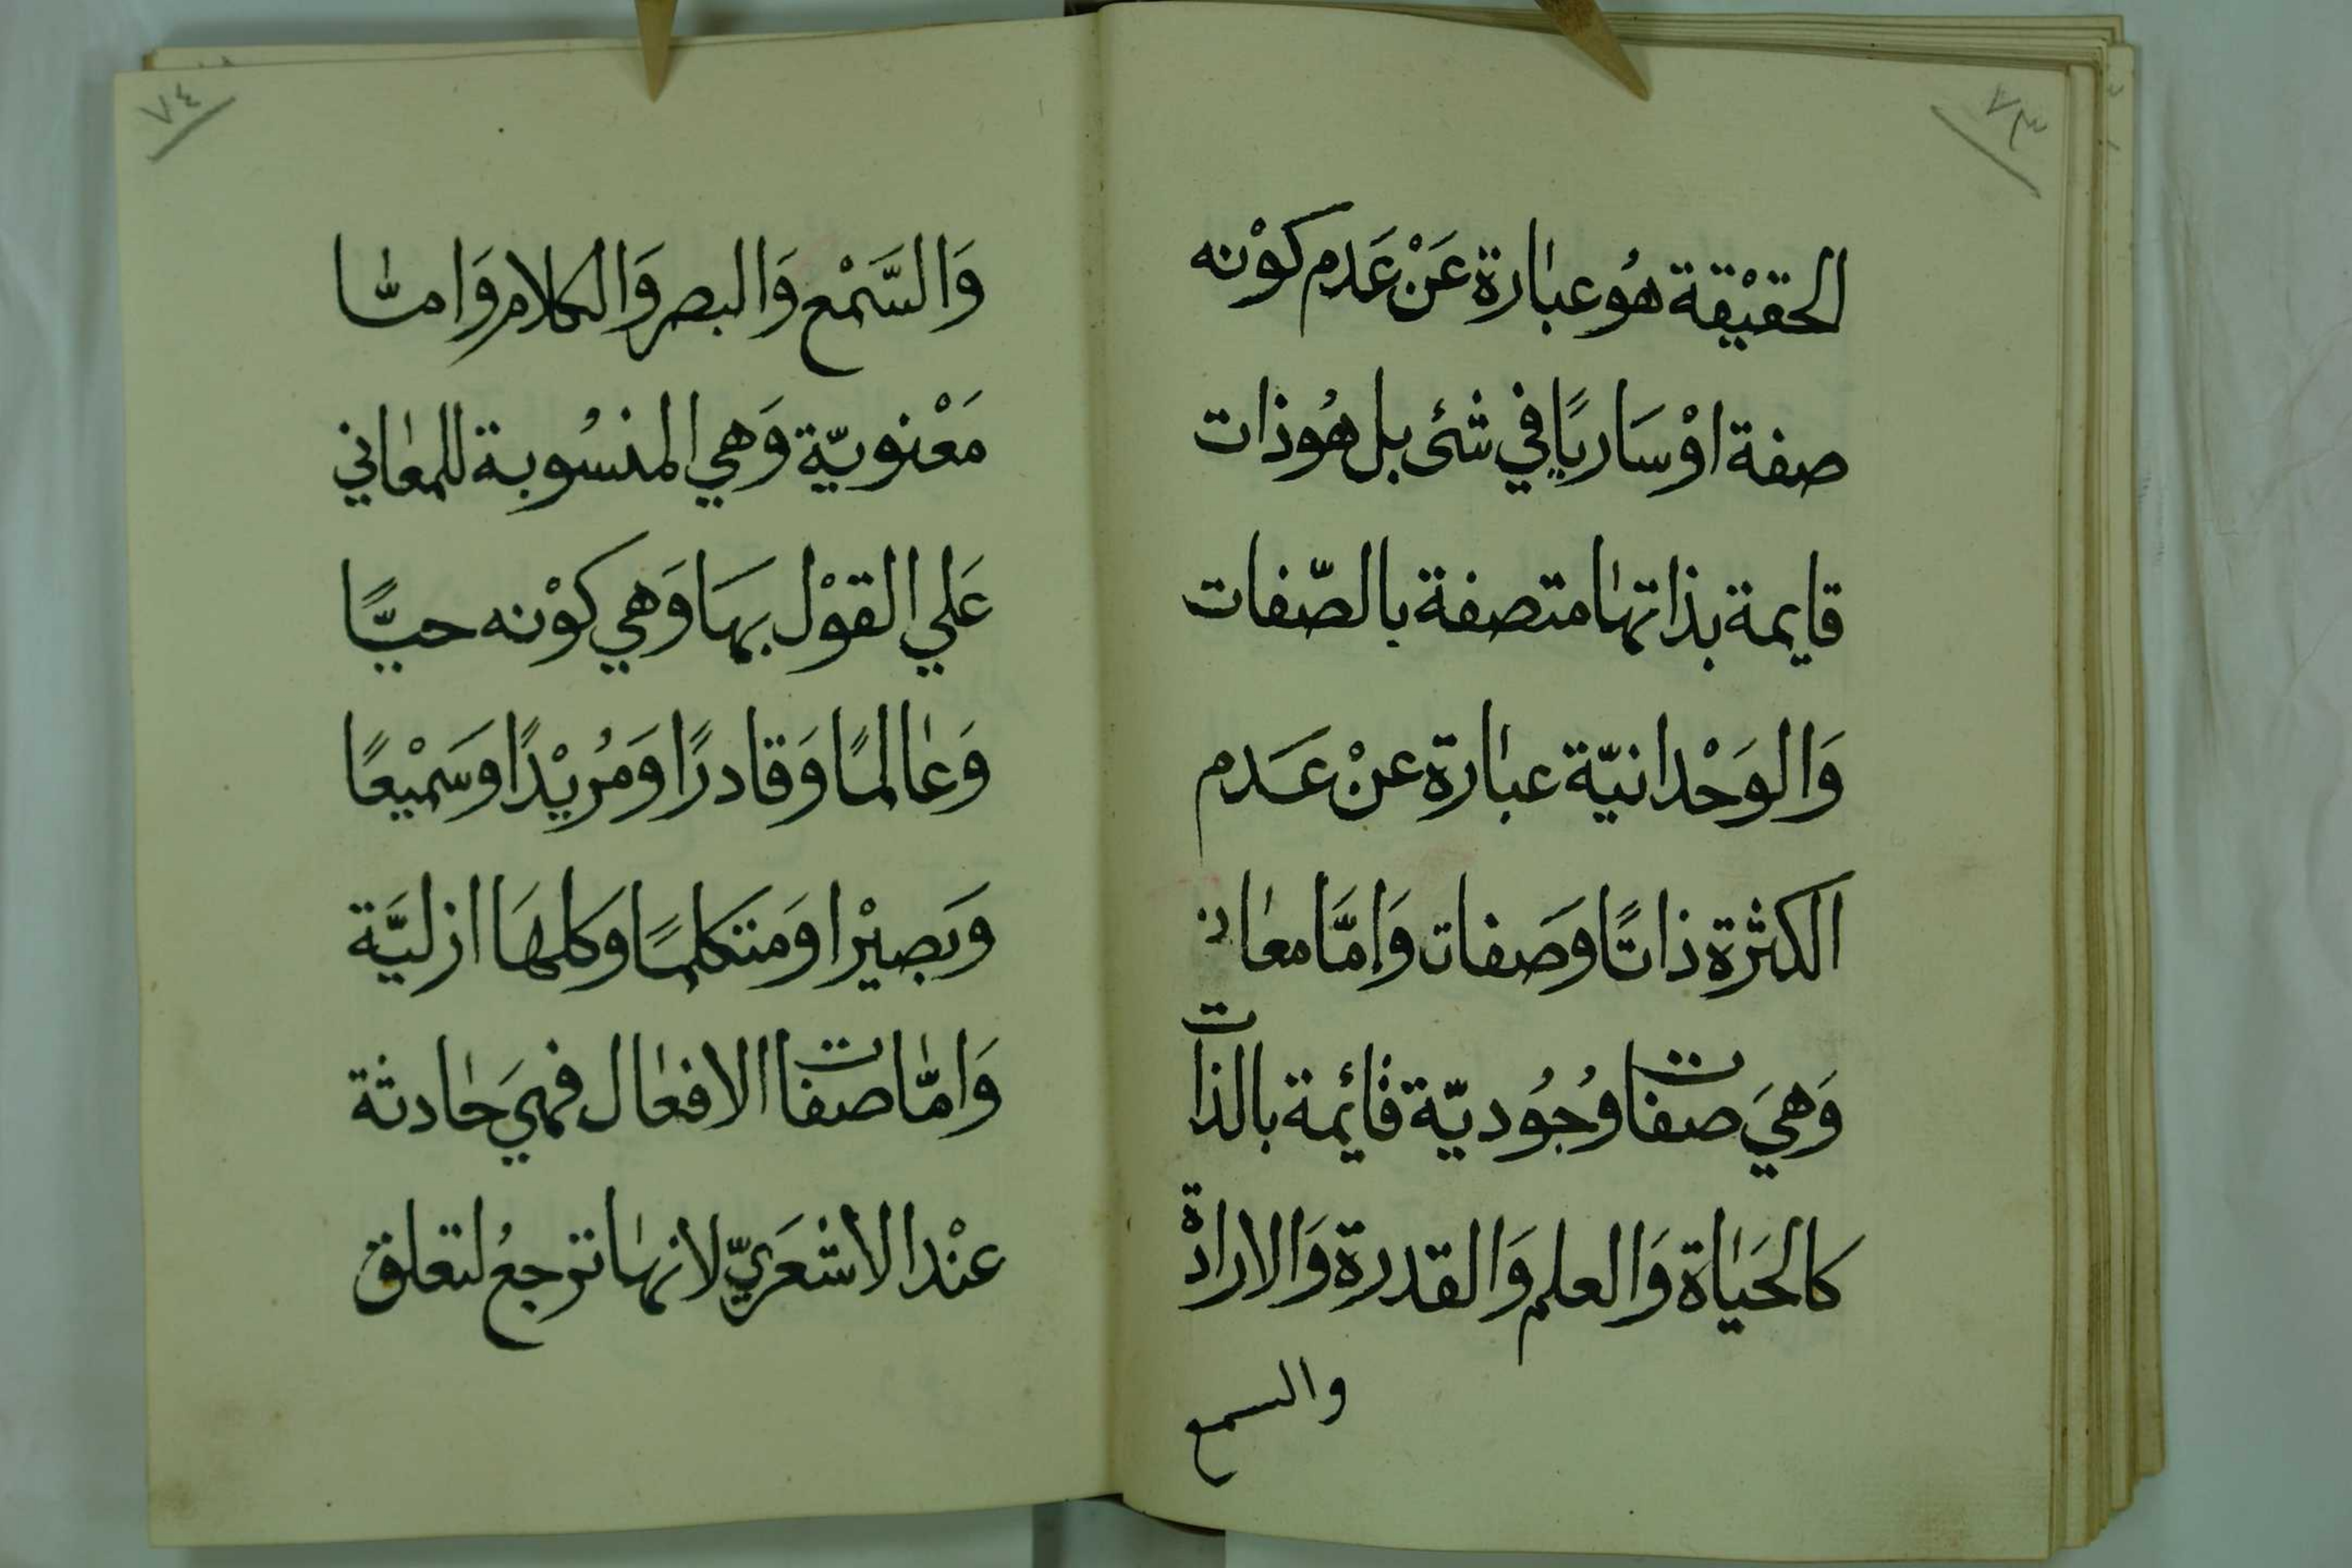 ٧٣
الحقيْقة هُو عبارة عَنْ عَدَم كوْنه
صفة اوْ سَاريًا في شئ بل هُو ذات
قايمة بذاتها متصفة بالصّفات
وَالوَحْدانيّة عبارة عنْ عَدم
الكثرة ذاتًا وَصَفات وَإمَّا معان
وَهيَ صفات وُجُوديّة قائمة بالذات
كالحَياة وَالعلم وَالقدرة وَالارادة
والسمع
٧٤
وَالسَّمْع وَالبصر وَالكلام وَامّا
مَعْنويّة وَهي المنسُوبة للمعاني
عَلي القوْل بهَا وَهي كوْنه حيًّا
وَعالمًا وَقادرًا وَمُريْدًا وسَميْعًا
وَبصيْرا وَمتكلمًا وكلهَا ازليَّة
وَامّا صفات الافعال فهيَ حادثة
عنْد الاشْعَريّ لانها ترجعُ لتعلق